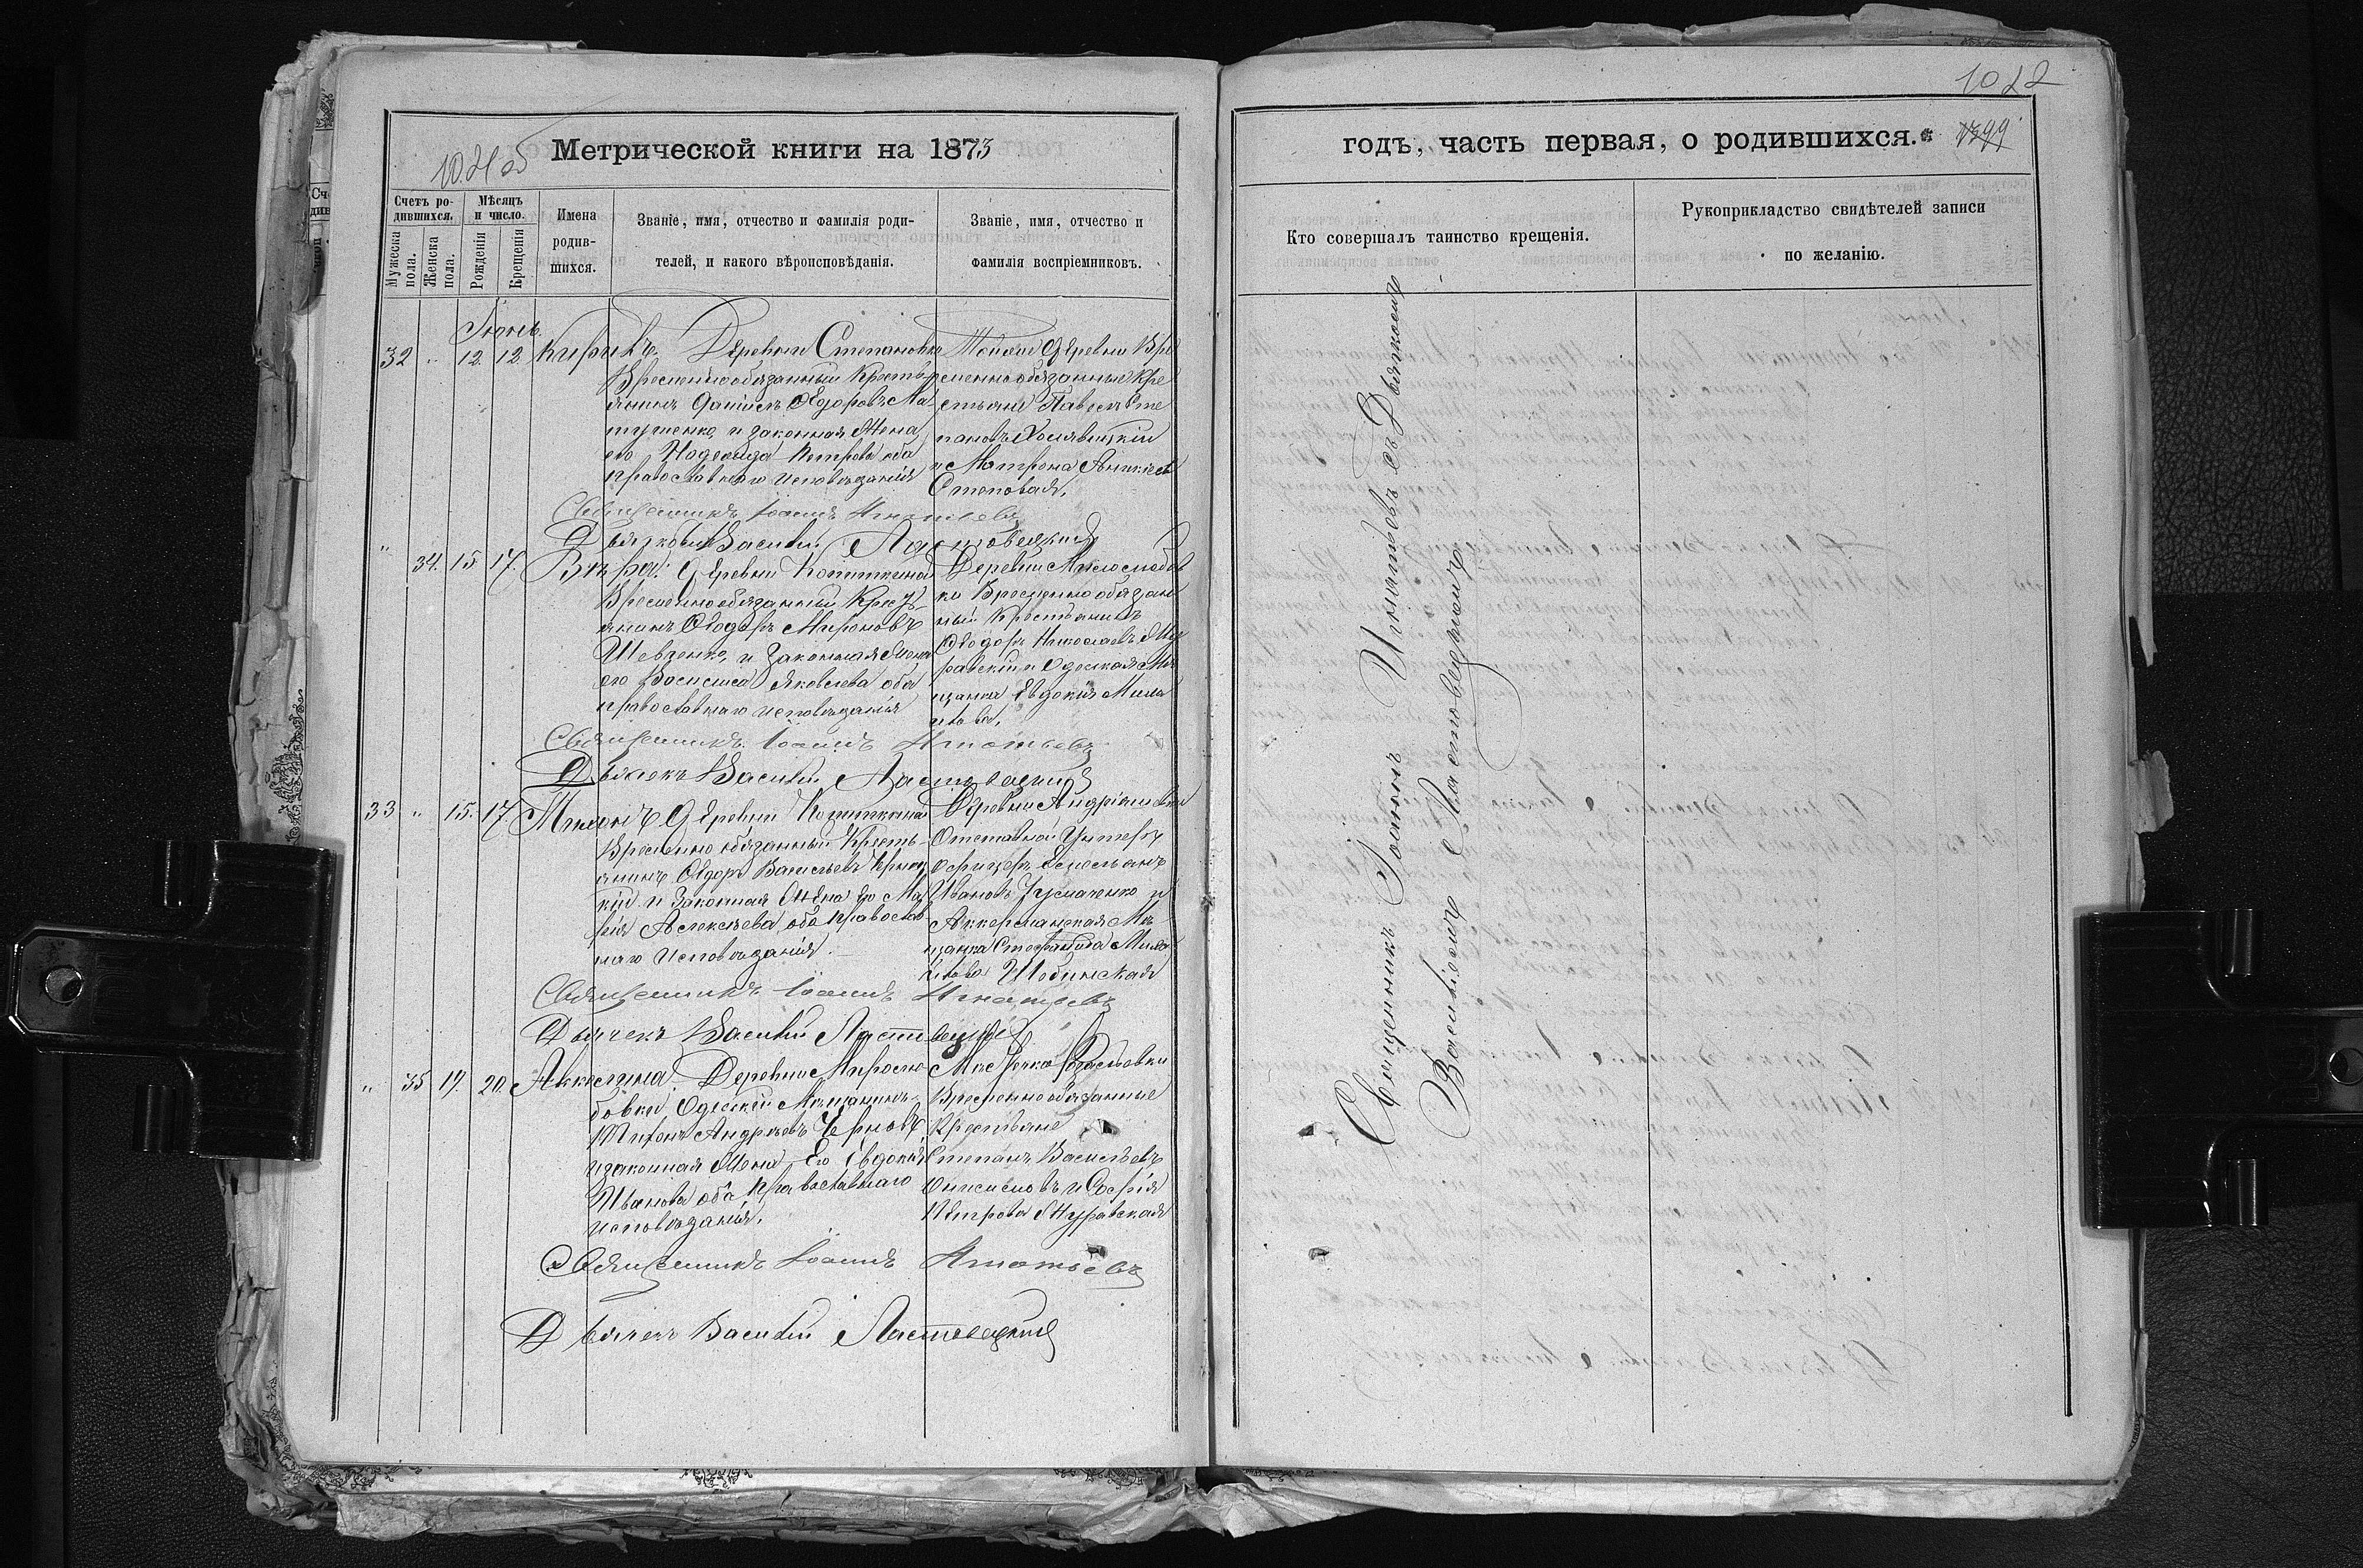 Метрической книги на 1873
1021 об
Счетъ ро-
дившихся.
Мужеска
пола.
Женска
пола.
Мѣсяцъ
и число.
Рожденія
Крещенія
Имена
родив-
шихся.
Званіе, имя, отчество и фамилія роди-
телей, и какого вѣроисповѣданія.
Званіе, имя, отчество и
фамилія воспріемниковъ.
Іюнь
32 " 12 12 Кирикъ
Деревни Степановки
Временнообязанный Кресть-
янинъ Даніилъ Ѳедоровъ Ма-
тушенко, и законная Жена
его Надежда Петрова оба
православнаго исповѣданія
Тойже Деревни Вре
менно обязанные Кре
стьяне Павелъ Сте
пановъ
и Матрона
Степовая.
Священникъ Іоаннъ Игнатьевъ
Дьячокъ Василій Ластовецкій
" 34. 15 17. Вѣра.
Деревни
Временнообязанный Крест-
янинъ Ѳеодоръ Мироновъ
Шевченко, и законная Жена
его Василиса Яковлева оба
православнаго исповѣданія
Деревни Милослобод
ки Временно обязан
ный Крестьянинъ
Ѳеодоръ Николаевъ Жу
равскій и Одеская Мѣ
щанка Евдокія
Священникъ Іоаннъ Игнатьевъ
Дьячекъ Василій Ластовецкій
33 " 15. 17. Тихонъ
Деревни
Временно обязанный Кресть-
янинъ Ѳедоръ Васильевъ
кій и Законная Жена Его Ма
рія Алексѣева оба православ-
наго исповѣданія.
Деревни Андріяшевки
Отставной Унтеръ
Офицеръ Емельянъ
Ивановъ и
Аккерманская Мѣ
щанка Стефанида
Шобинская
Священникъ Іоаннъ Игнатьевъ
Дьячекъ Василій Ластовецкій
" 35 19. 20. Аккилина.
Деревни Миросло
бовки, Одескій Мѣщанинъ
Тихонъ Андреевъ Черновъ,
и законная Жена Его Евдокія
Иванова оба Православнаго
исповѣданія.
Мѣстечка
Временнообязанные
Крестьяне
Степанъ Васильевъ
и Софія
Петрова Журавская
Священникъ Іоаннъ Игнатьевъ
Дьячекъ Василій Ластовецкій
1022
годъ, часть первая, о родившихся.
1399
Кто совершалъ таинство крещенія.
Рукоприкладство свидѣтелей записи
по желанію.
Священникъ Іоаннъ Игнатьевъ съ Дьячкомъ
Василіемъ Ластовецкимъ